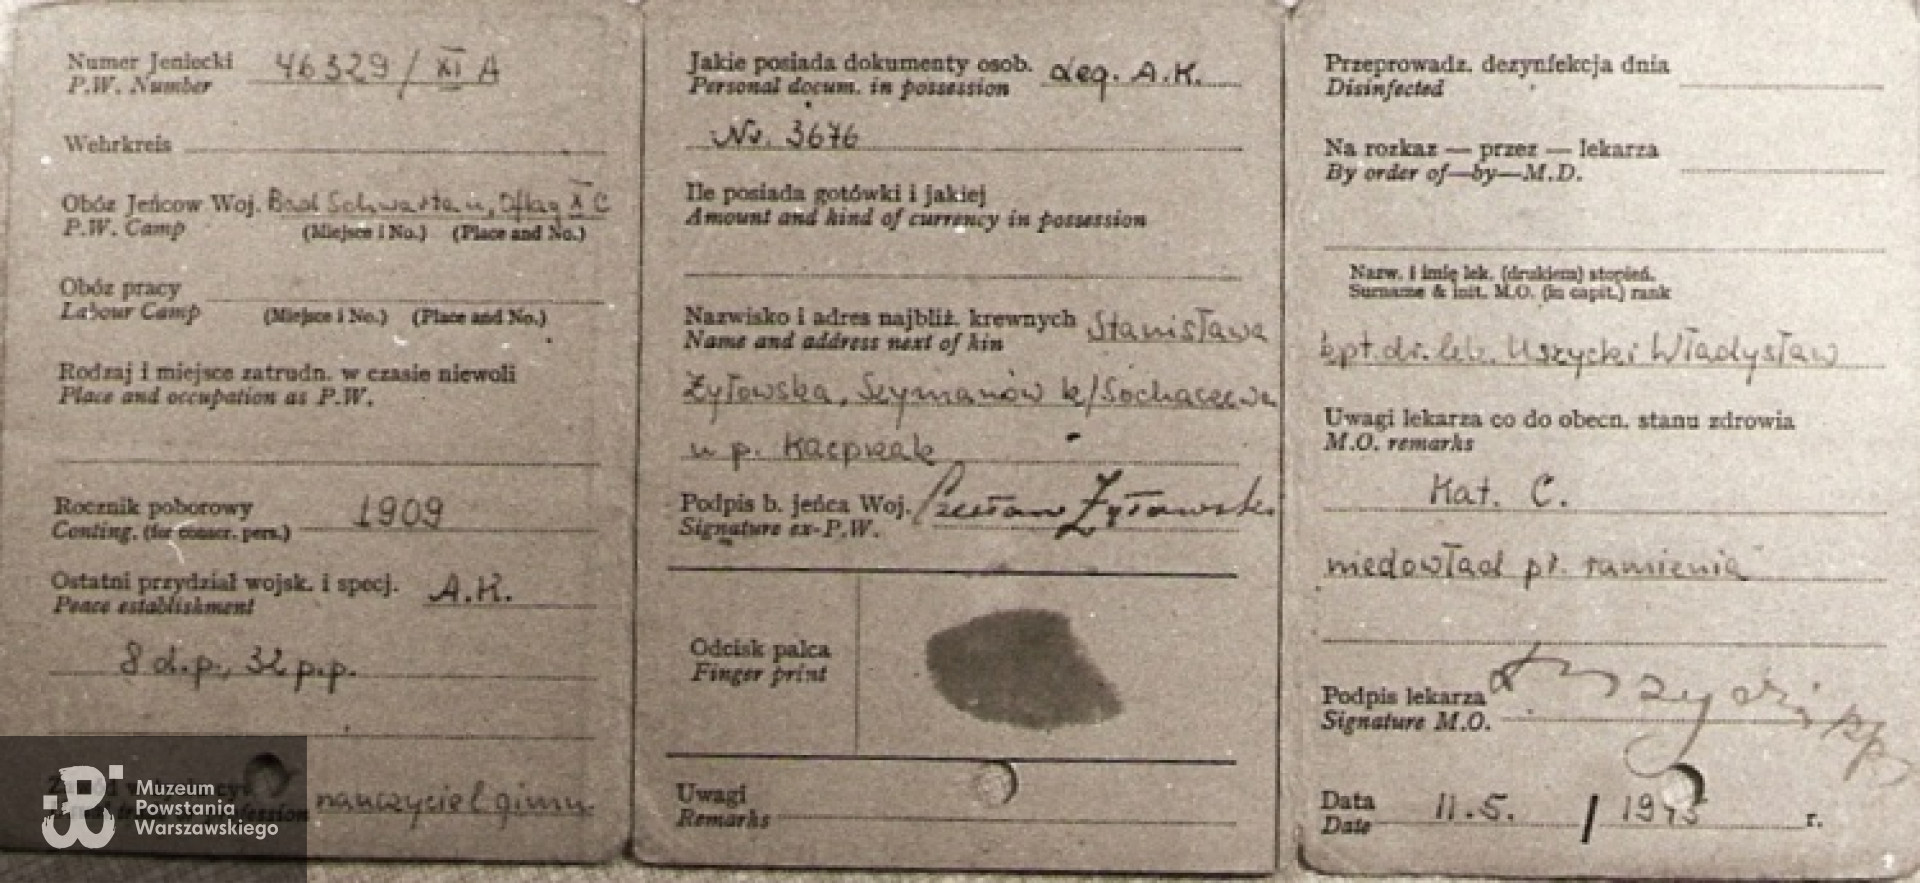 Numer Jeniecki 46329/XI A
P.W. Number
Wehrkreis
Obóz Jeńców Woj. Bad Schwartau, Oflag X C
P.W. Camp (Miejsce i No.) (Place and No.)
Obóz pracy
Labour Camp (Miejsce i No.) (Place and No.)
Rodzaj i miejsce zatrudn. w czasie niewoli
Place and occupation as P.W.
Rocznik poborowy 1909
Conting. (for conscr. pers.)
Ostatni przydział wojsk. i specj. A.K.
Peace establishment
8 d.p., 32 p.p.
nauczyciel gimn.
Muzeum
Powstania
Warszawskiego
Jakie posiada dokumenty osob. Leg. A.K.
Personal docum. in possession
Nr. 3676
Ile posiada gotówki i jakiej
Amount and kind of currency in possession
Nazwisko i adres najbliż. krewnych Stanisława
Name and address next of kin
Żyłowska, Szymanów k/Sochaczewa
u p. Kacprzak
Podpis b. jeńca Woj. Czesław Żyłowski
Signature ex-P.W.
Odcisk palca
Finger print
Uwagi
Remarks
Przeprowadz. dezynfekcja dnia
Disinfected
Na rozkaz — przez — lekarza
By order of—by—M.D.
Nazw. i imię lek. (drukiem) stopień.
Surname & init. M.O. (in capit.) rank
kpt. dr. lek. Uszycki Władysław
Uwagi lekarza co do obecn. stanu zdrowia
M.O. remarks
Kat. C.
niedowład pr. ramienia
Podpis lekarza
Signature M.O.
Data 11.5. / 1945 r.
Date